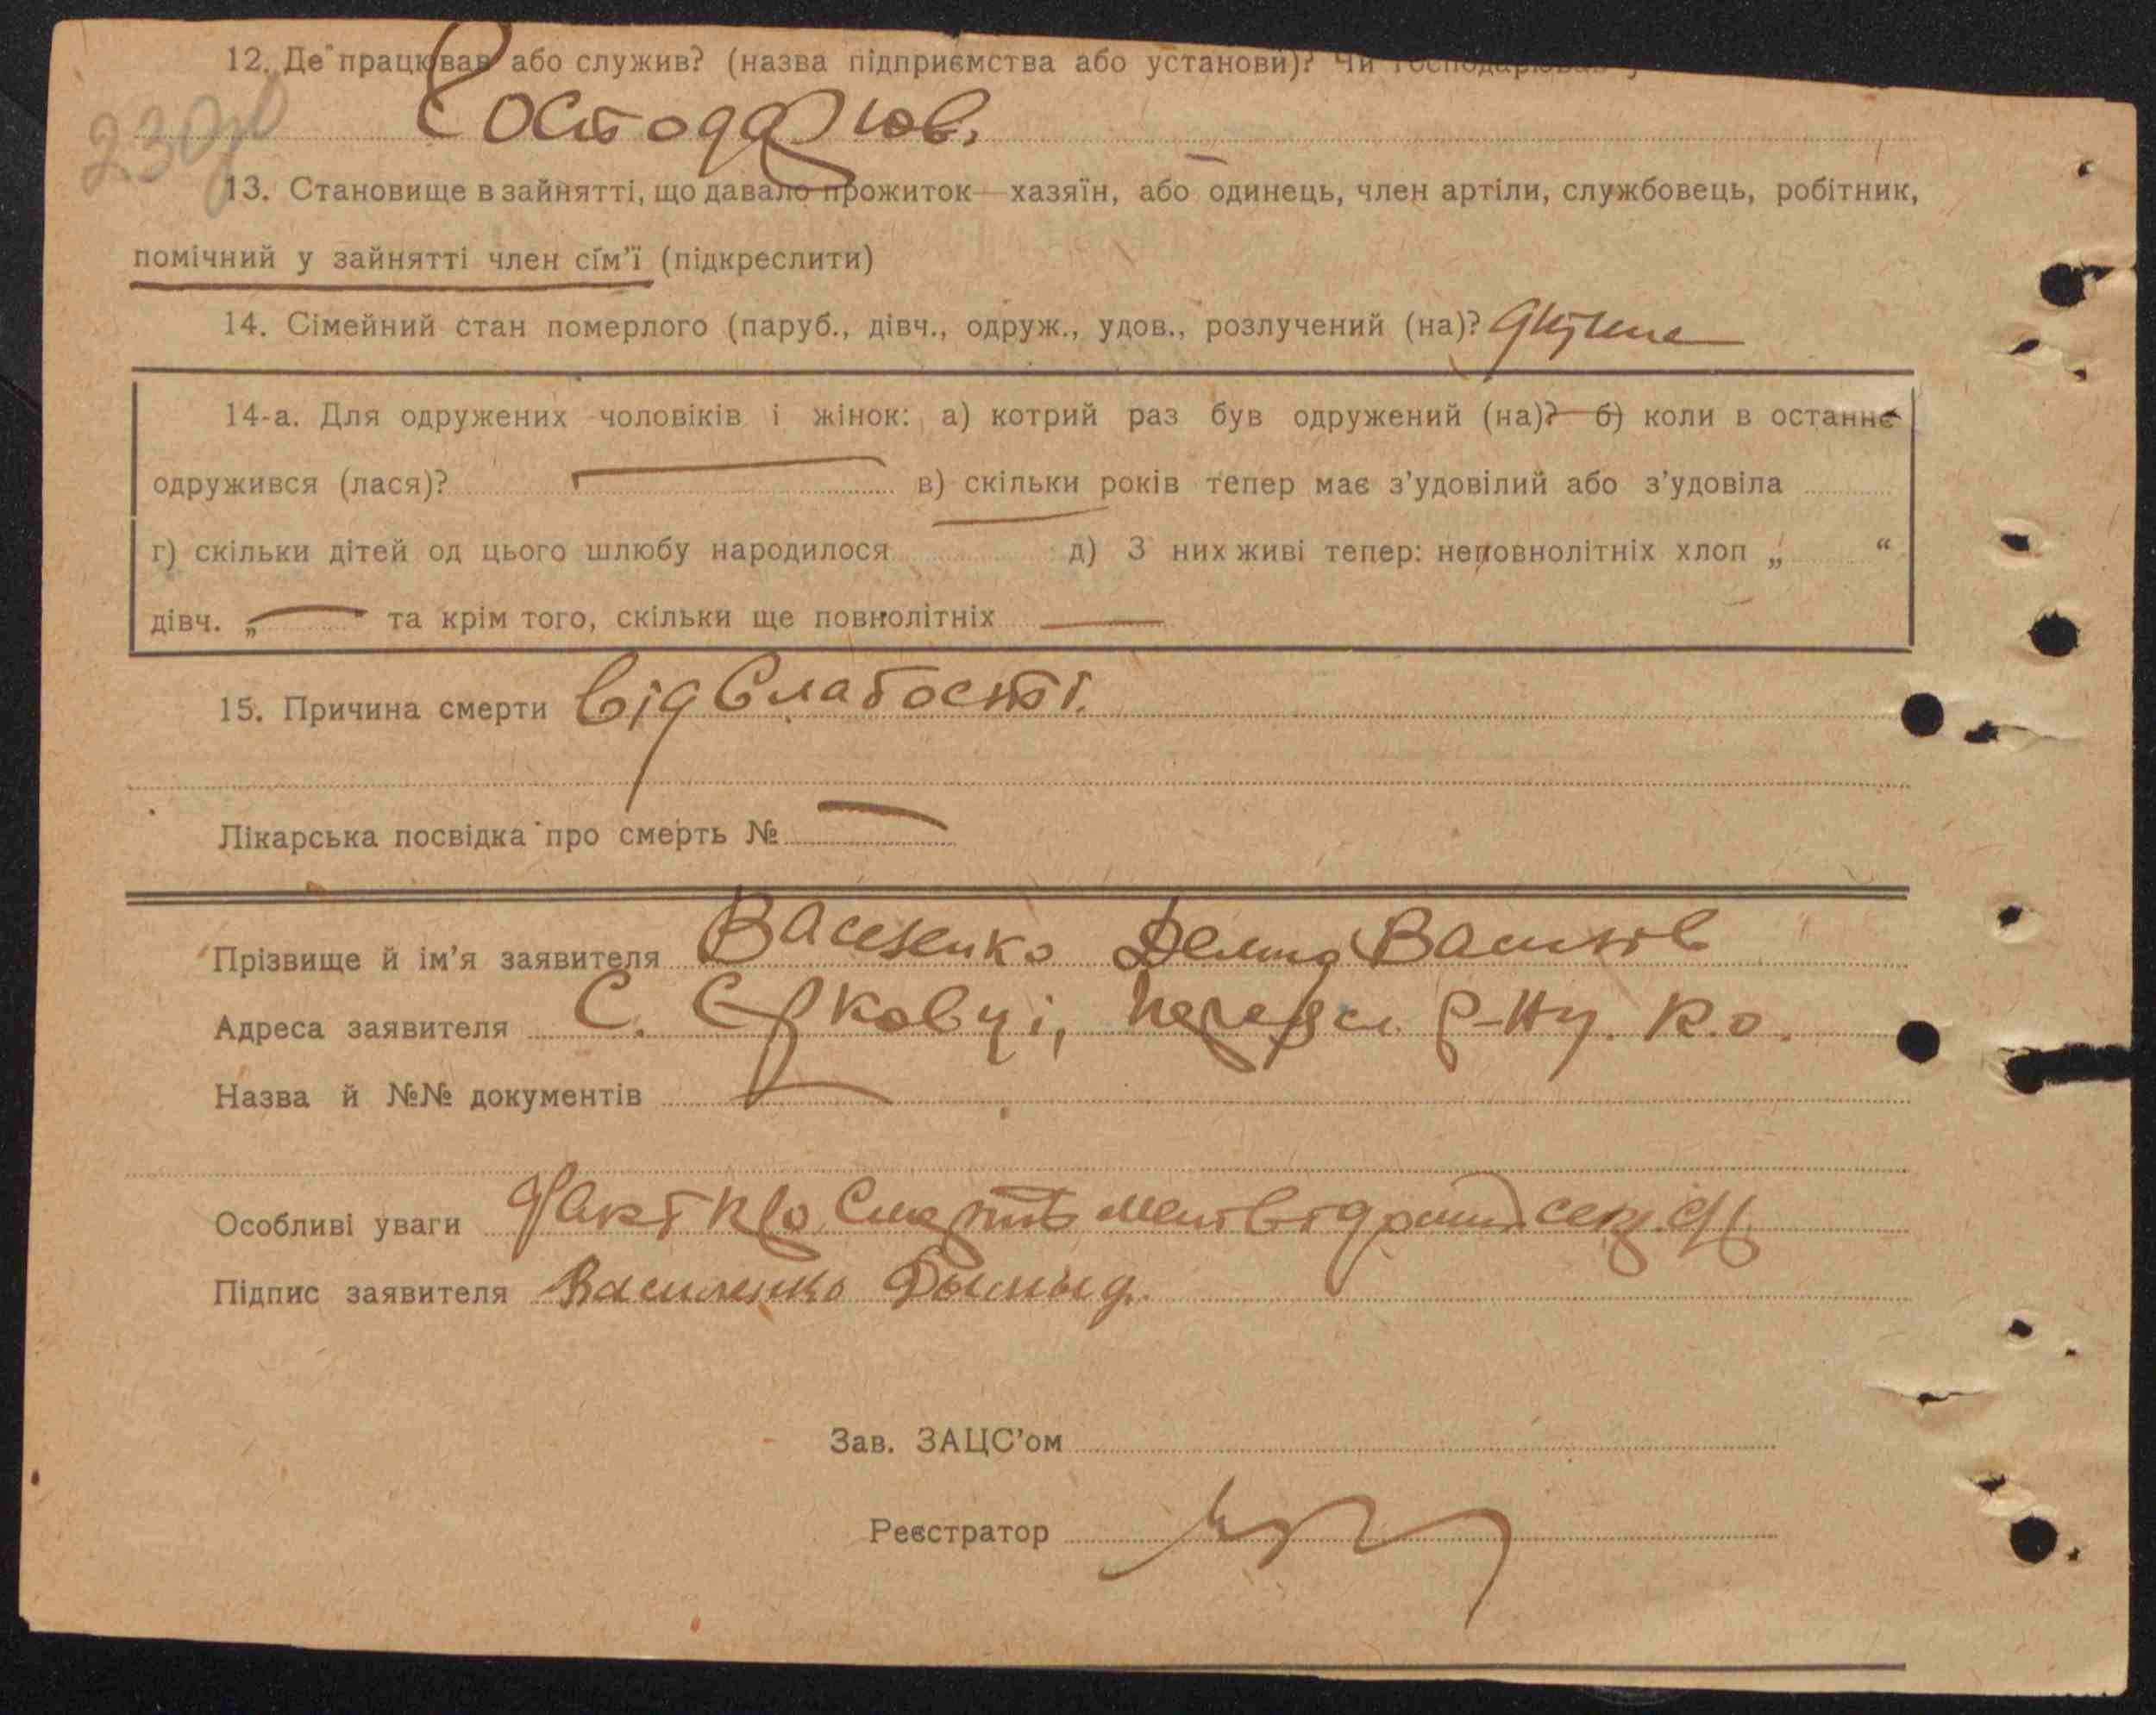 12. Де працював або служив? (назва підприємства або установи)? Чи господарював у
230
13. Становище в зайнятті, що давало прожиток—хазяїн, або одинець, член артіли, службовець, робітник,
помічний у зайнятті член сім'ї (підкреслити)
14. Сімейний стан померлого (паруб., дівч., одруж., удов., розлучений (на)?
14-а. Для одружених чоловіків і жінок: а) котрий раз був одружений (на)? б) коли в останнє
одружився (лася)? в) скільки років тепер має з'удовілий або з'удовіла
г) скільки дітей од цього шлюбу народилося д) З них живі тепер: неповнолітніх хлоп „ “
дівч. „ “ та крім того, скільки ще повнолітніх
15. Причина смерти Від Слабости.
Лікарська посвідка про смерть №
Прізвище й ім'я заявителя Василенко Демид Васильов
Адреса заявителя С. Єрковці, Переясл. р-ну. К.о.
Назва й №№ документів
Особливі уваги Факт про Смерть
Підпис заявителя Василенко Дымыд.
Зав. ЗАЦС'ом
Реєстратор